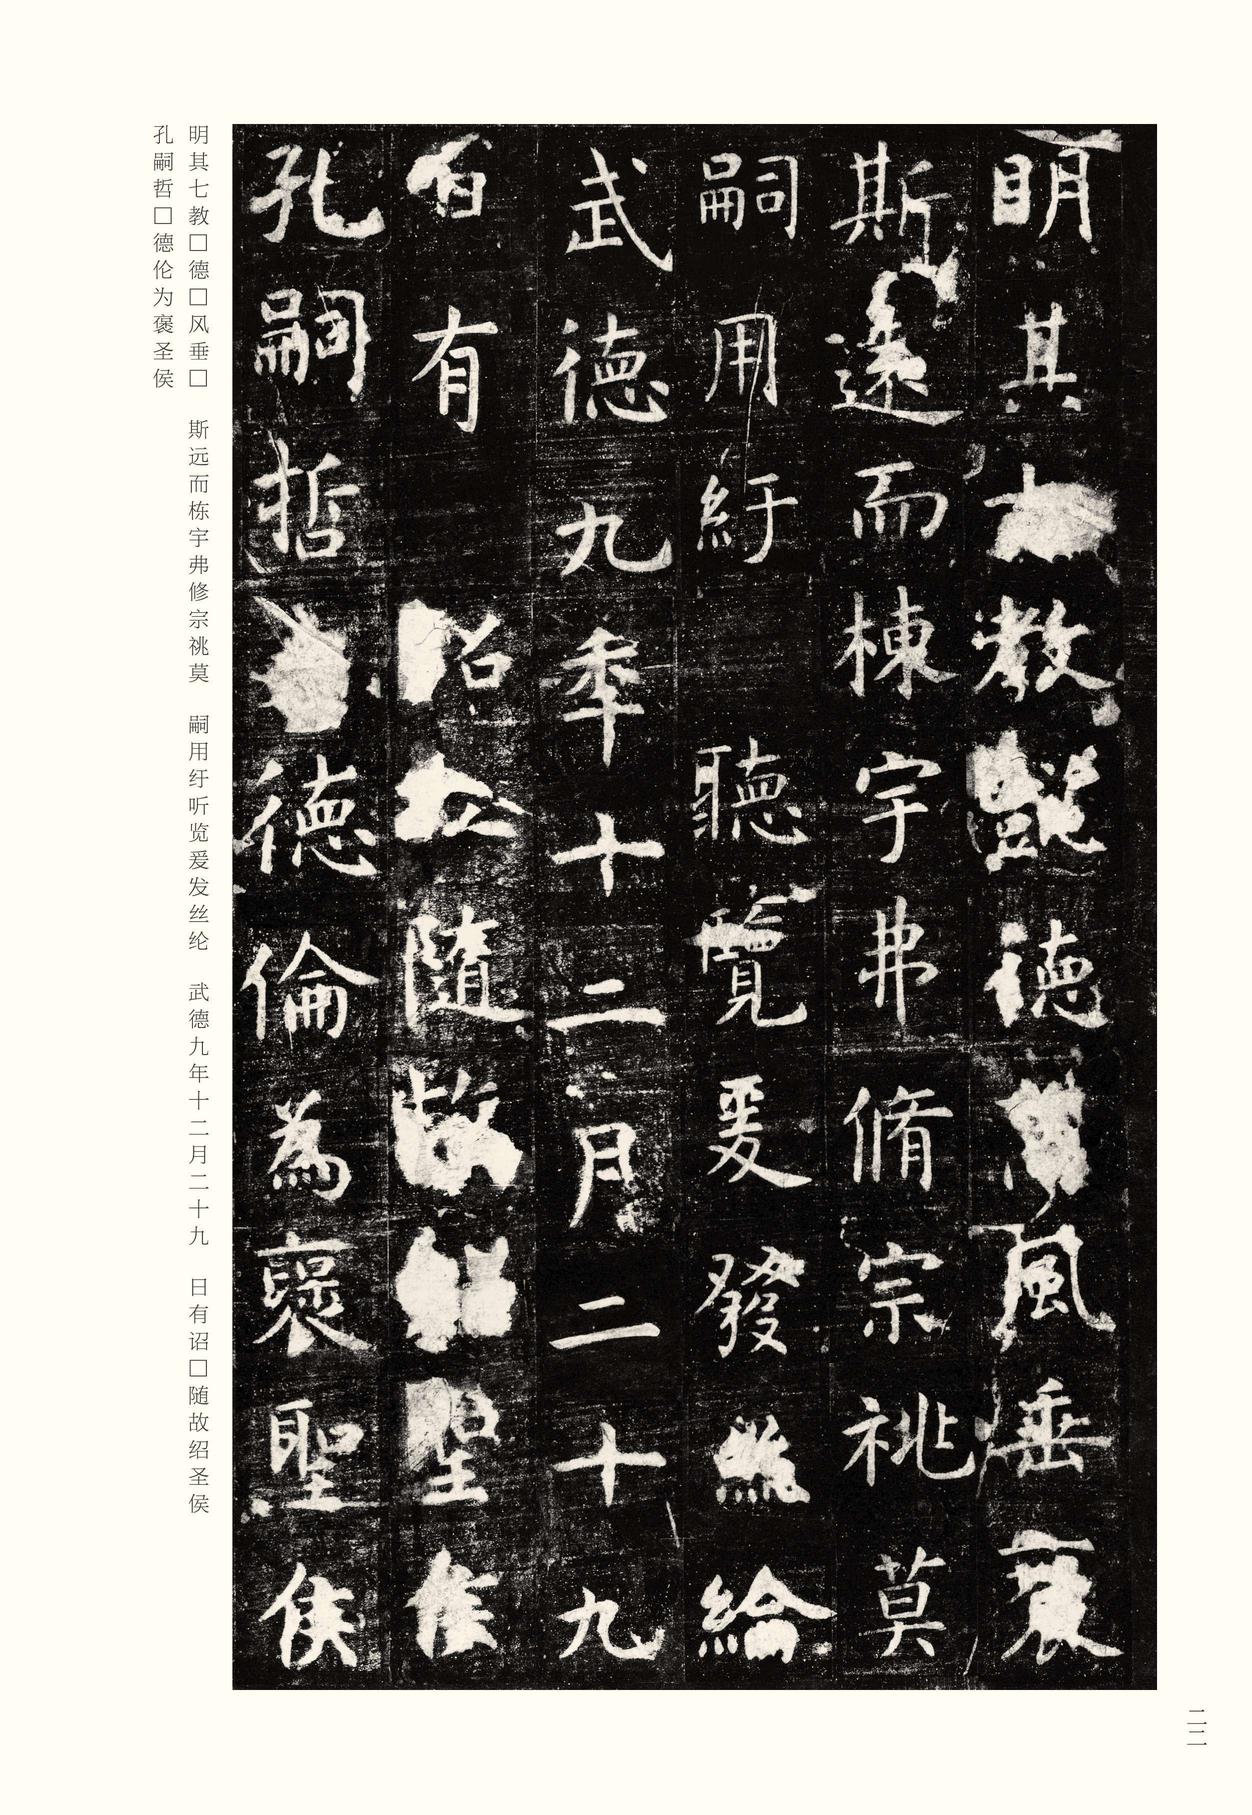 明其七教德風垂
斯遠而棟宇弗脩宗祧莫
嗣用紆聽覽爰發絲綸
武德九秊十二月二十九
日有詔立隨故紹聖侯
孔嗣哲德倫為褒聖侯
明其七教□德□风垂□　斯远而栋宇弗修宗祧莫　嗣用纡听览爰发丝纶　武德九年十二月二十九　日有诏□随故绍圣侯
孔嗣哲□德伦为褒圣侯
二二